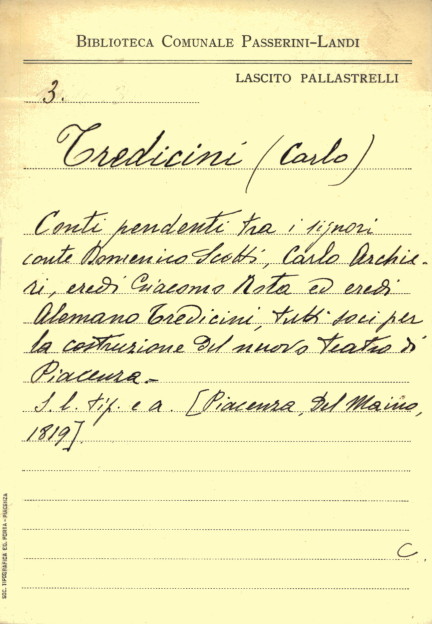 BIBLIOTECA COMUNALE PASSERINI-LANDI
LASCITO PALLASTRELLI
3.
Tredicini (Carlo)
Conti pendenti tra i signori
conte Domenico Scotti, Carlo Archie-
ri, eredi Giacomo Rota ed eredi
Alemano Tredicini, tutti soci per
la costruzione del nuovo teatro di
Piacenza.-
S. l. tip. e a. [Piacenza, Del Maino,
1819].
C.
SOC. TIPOGRAFICA ED. PORTA - PIACENZA